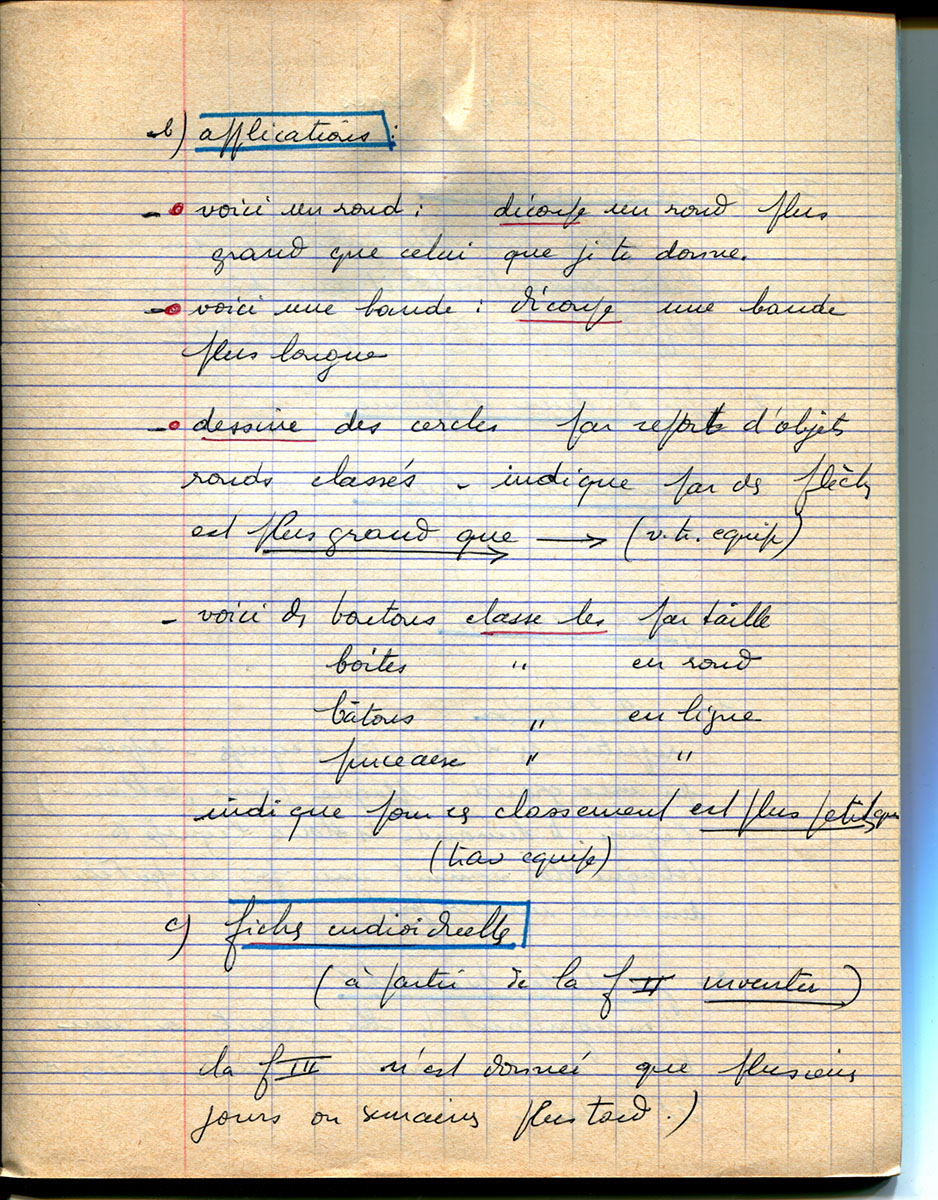 b) applications :
- voici un rond : découpe un rond plus
grand que celui que je te donne.
- voici une bande : découpe une bande
plus longue
- dessine des cercles par report d'objets
ronds classés - indique par des flèches
est plus grand que → (v. tr. equipe)
- voici des boutons classe les par taille
boîtes " en rond
bâtons " en ligne
pinceaux " "
indique pour ces classement est plus petit que
(trav equipe)
c) fiches individuelles
(à partir de la f II inventer)
la f III n'est donnée que plusieurs
jours ou semaines plus tard.)